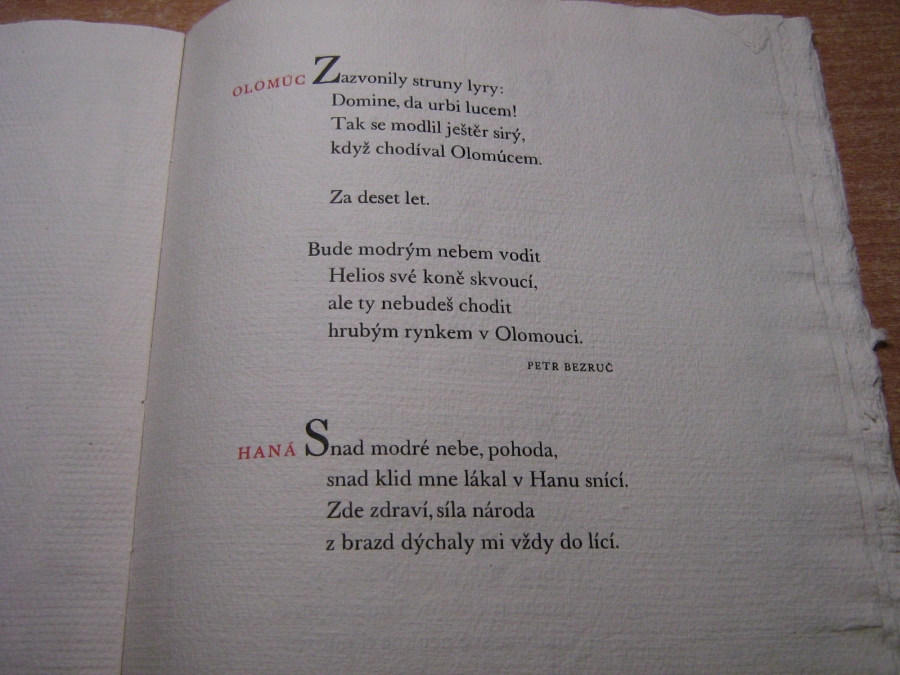 OLOMÚC Zazvonily struny lyry:
Domine, da urbi lucem!
Tak se modlil ještěr sirý,
když chodíval Olomúcem.
Za deset let.
Bude modrým nebem vodit
Helios své koně skvoucí,
ale ty nebudeš chodit
hrubým rynkem v Olomouci.
PETR BEZRUČ
HANÁ Snad modré nebe, pohoda,
snad klid mne lákal v Hanu snící.
Zde zdraví, síla národa
z brazd dýchaly mi vždy do lící.